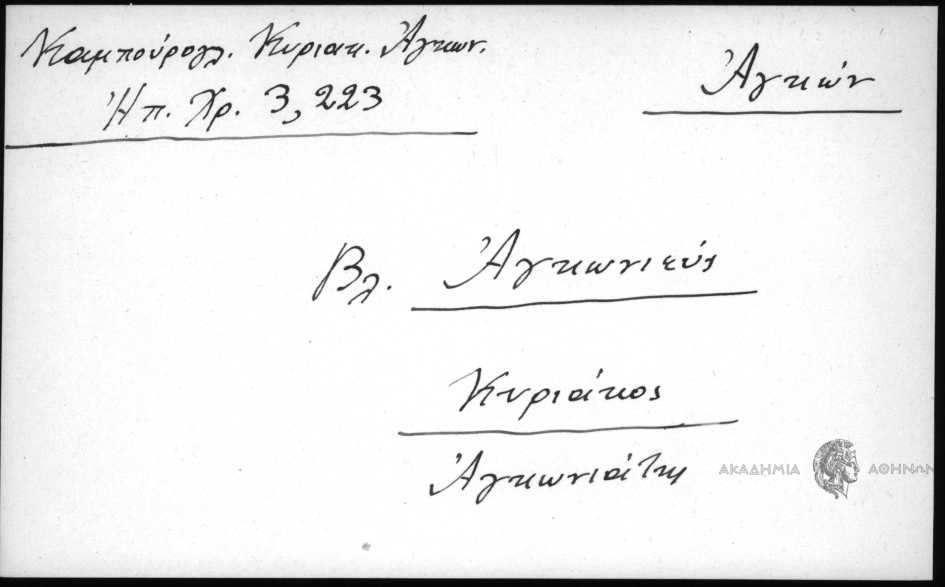 Καμπούρογλ. Κυριακ. Ἀγκων.
Ἠπ. Χρ. 3, 223
Ἀγκών
Βλ. Ἀγκωνιεύς
Κυριάκος
Ἀγκωνιάτης
ΑΚΑΔΗΜΙΑ ΑΘΗΝΩΝ